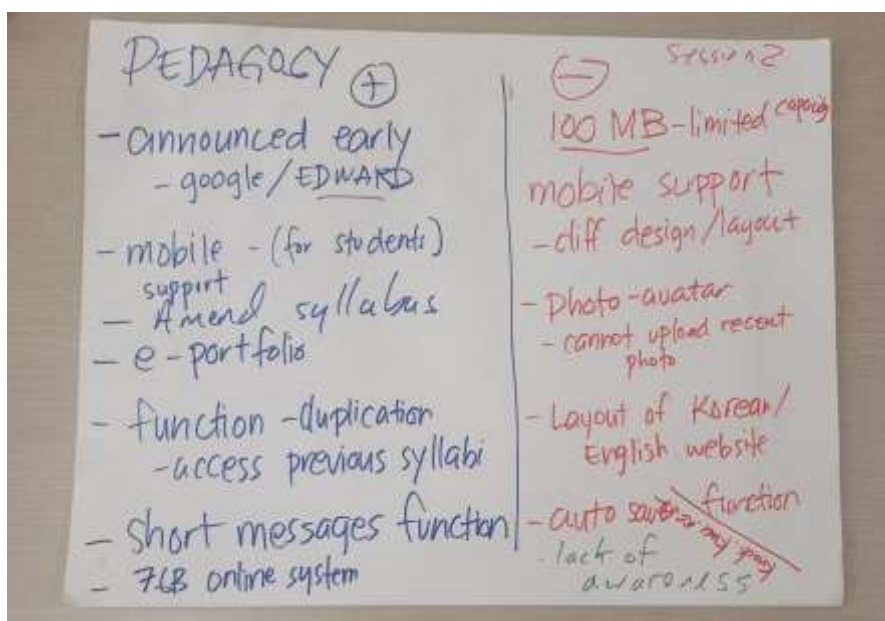 PEDAGOGY +
- announced early
- google/EDWARD
- mobile - (for students)
support
- Amend syllabus
- e-portfolio
- function - duplication
- access previous syllabi
- short messages function
- 7GB online system
Session 2
-
100 MB - limited capacity
mobile support
- diff design/layout
- photo-avatar
- cannot upload recent
photo
- Layout of Korean/
English website
- auto save function
- lack of
awareness